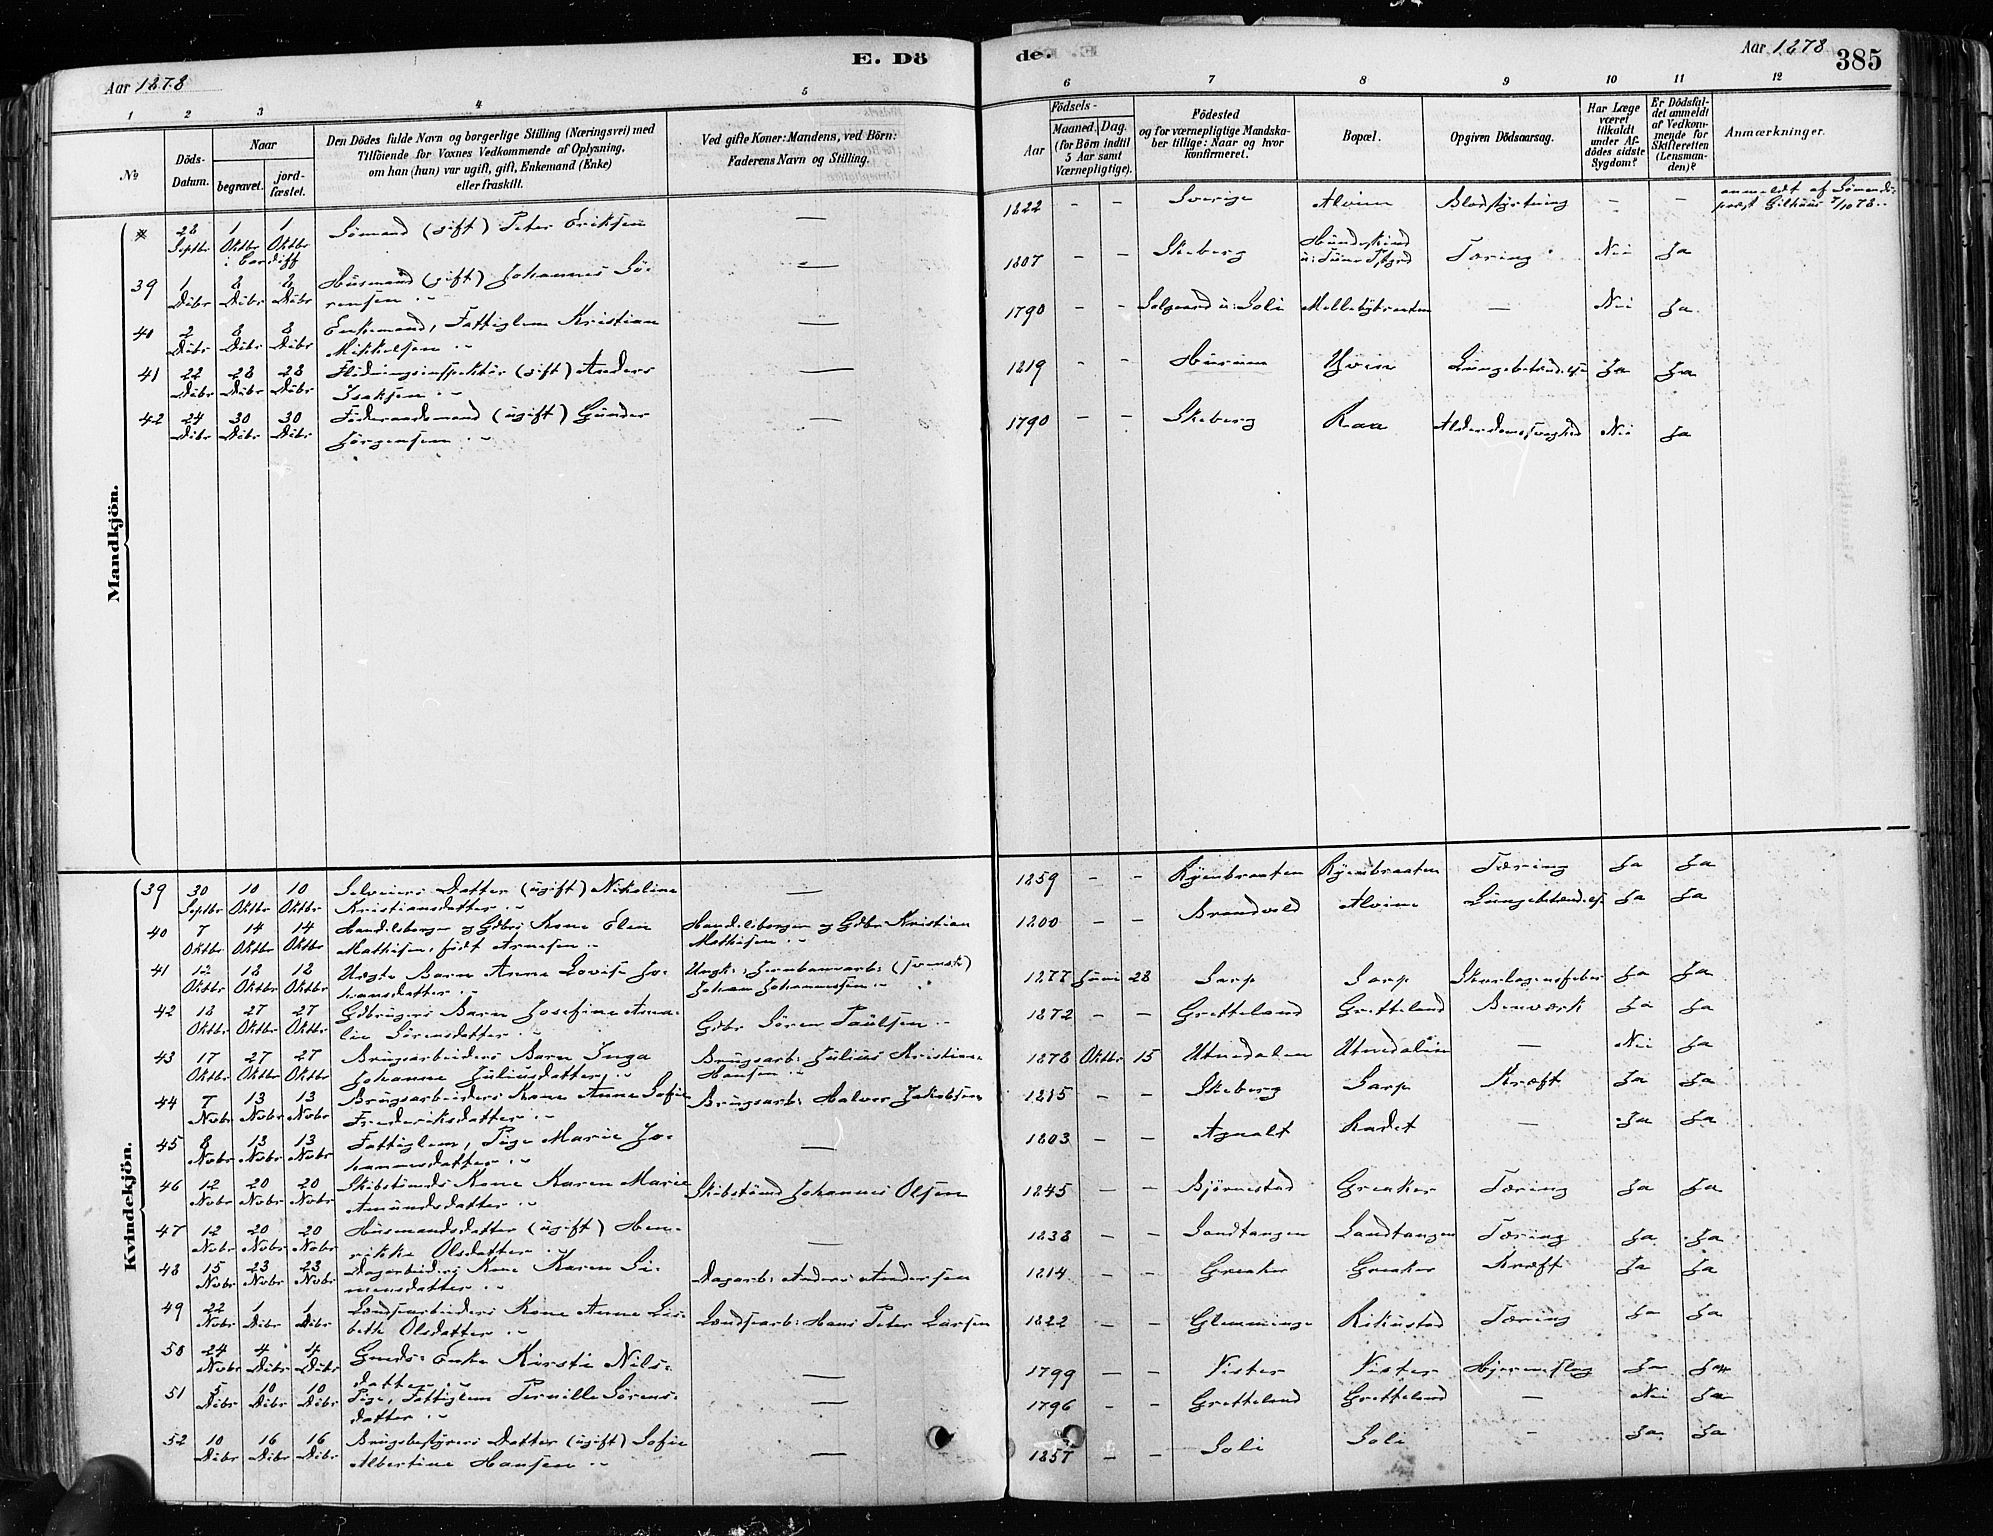 E. Dö
de.
Aar 1878
Aar 1878
385
1
2
3
4
5
6
7
8
9
10
11
12
No
Döds-
Datum.
Naar
begravet.
jord-
fæstet.
Den Dödes fulde Navn og borgerlige Stilling (Næringsvei) med
Tilföiende for Voxnes Vedkommende af Oplysning,
om han (hun) var ugift, gift, Enkemand (Enke)
eller fraskilt.
Ved gifte Koner: Mandens, ved Börn:
Faderens Navn og Stilling.
Födsels-
Aar
Maaned.
Dag.
(for Börn indtil
5 Aar samt
Værnepligtige).
Födested
og for værnepligtige Mandska-
ber tillige: Naar og hvor
konfirmeret.
Bopæl.
Opgiven Dödsaarsag.
Har Læge
været
tilkaldt
under Af-
dödes sidste
Sygdom?
Er Dödsfal-
det anmeldt
af Vedkom-
mende for
Skifteretten
(Lensman-
den)?
Anmærkninger.
Mandkjön.
28 Septbr 1 Oktbr 1 Oktbr i Cardiff Sömand (gift) Peter Eriksen — 1822 - - Sverige Alvim Blodstyrtning - - anmeldt af Sömands-
præst 7/10 78.
39 1 Dcbr 8 Dcbr 8 Dcbr Husmand (gift) Johannes Sö-
rensen — 1807 - - Skeberg Hundskind
u: Tune Pstgrd Tæring Nei Ja
40 2 Dcbr 8 Dcbr 8 Dcbr Enkemand, Fattiglem Kristian
Mikkelsen — 1790 - - Solgaard u: Soli Mellebybraaten — Nei Ja
41 22 Dcbr 28 Dcbr 28 Dcbr Flödningsinspektör (gift) Anders
Isaksen — 1819 - - Husum Hvin Lungebetændelse Ja Ja
42 24 Dcbr 30 Dcbr 30 Dcbr Föderaadsmand (ugift) Gunder
Jörgensen — 1790 - - Skeberg Raa Alderdomssvaghed Nei Ja
Kvindekjön.
39 30 Septbr 10 Oktbr 10 Oktbr Selveiers Datter (ugift) Nikoline
Kristiansdatter — 1859 - - Ryenbraaten Ryenbraaten Tæring Ja Ja
40 7 Oktbr 14 Oktbr 14 Oktbr Handelsborger og Gdbrs Kone Elen
Mathisen, født Arnesen Handelsborger og Gdbr Kristian
Mathisen 1800 - - Brandvold Alvim Lungebetændelse Ja Ja
41 12 Oktbr 18 Oktbr 18 Oktbr Uægte Barn Anne Lovise Jo-
hansdatter Ungk: Jernbanearb: (svensk)
Johan Johannessen 1877 Juni 28 Sarp Sarp Skarlagensfeber Ja Ja
42 18 Oktbr 27 Oktbr 27 Oktbr Gdbrugers Barn Josefine Ama-
lie Sörensdatter Gdbr Sören Paulsen 1872 - - Gretteland Gretteland Benværk Ja Ja
43 17 Oktbr 27 Oktbr 27 Oktbr Brugsarbeiders Barn Inga
Johanne Juliusdatter Brugsarb: Julius Kristian
Hansen 1878 Oktbr 15 Utnedalen Utnedalen — Nei Ja
44 7 Nvbr 13 Nvbr 13 Nvbr Brugsarbeiders Kone Anne Sofie
Frederiksdatter Brugsarb: Halvor Jakobsen 1815 - - Skeberg Sarp Kræft Ja Ja
45 8 Nvbr 13 Nvbr 13 Nvbr Fattiglem, Pige Marie Jo-
hannesdatter — 1803 - - Agnalt Kadet — Ja Ja
46 12 Nvbr 20 Nvbr 20 Nvbr Skibstömds Kone Karen Marie
Amundsdatter Skibstömd Johannes Olsen 1845 - - Björnestad Greaker Tæring Ja Ja
47 12 Nvbr 20 Nvbr 20 Nvbr Husmandsdatter (ugift) Hen-
rikke Olsdatter — 1838 - - Sandtangen Sandtangen Tæring Ja Ja
48 15 Nvbr 23 Nvbr 23 Nvbr Dagarbeiders Kone Karen Si-
mensdatter Dagarb: Anders Andersen 1814 - - Greaker Greaker Kræft Ja Ja
49 22 Nvbr 1 Dcbr 1 Dcbr Lændsarbeiders Kone Anne Lis-
beth Olsdatter Lændsarb: Hans Peter Larsen 1822 - - Glemminge Rikustad Tæring Ja Ja
50 24 Nvbr 4 Dcbr 4 Dcbr Gmds: Enke Kirsti Nils-
datter — 1799 - - Vister Vister Hjerneslag Ja Ja
51 5 Dcbr 10 Dcbr 10 Dcbr Pige, Fattiglem Pernille Sörens-
datter — 1796 - - Gretteland Gretteland — Nei Ja
52 10 Dcbr 16 Dcbr 16 Dcbr Brugsbestyrers Datter (ugift) Sofie
Albertine Hansen — 1857 - - Soli Soli - Ja Ja